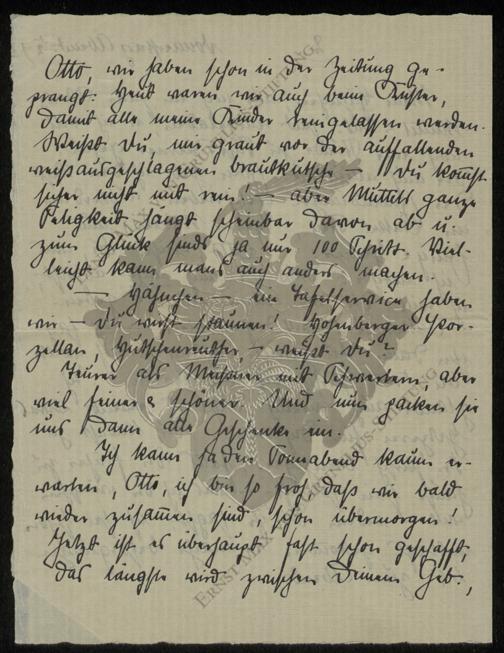 Otto, wir haben schon in der Zeitung ge-
prangt. Heut waren wir auch beim Küster,
damit alle meine Kinder reingelassen werden.
Weißt Du, mir graut vor der auffallenden
weißausgeschlagenen Brautkutsche – Du kommst
sicher nicht mit rein! – aber Muttils ganze
Seligkeit hängt scheinbar davon ab u.
zum Glück sinds ja nur 100 Schritt. Viel-
leicht kann mans auch anders machen.
– Hähnchen – ein Tafelservice haben
wir – Du wirst staunen! Hohenberger Por-
zellan, Hutschenreuther, – weißt Du?
Teurer als Meißner mit Schwertern, aber
viel feiner & schöner. Und nun packen sie
uns dann alle Geschenke ein.
Ich kann den Sonnabend kaum er-
warten, Otto, ich bin so froh, daß wir bald
wieder zusammen sind, schon übermorgen!
Jetzt ist es überhaupt fast schon geschafft,
das längste wird zwischen Deinem Geb.,